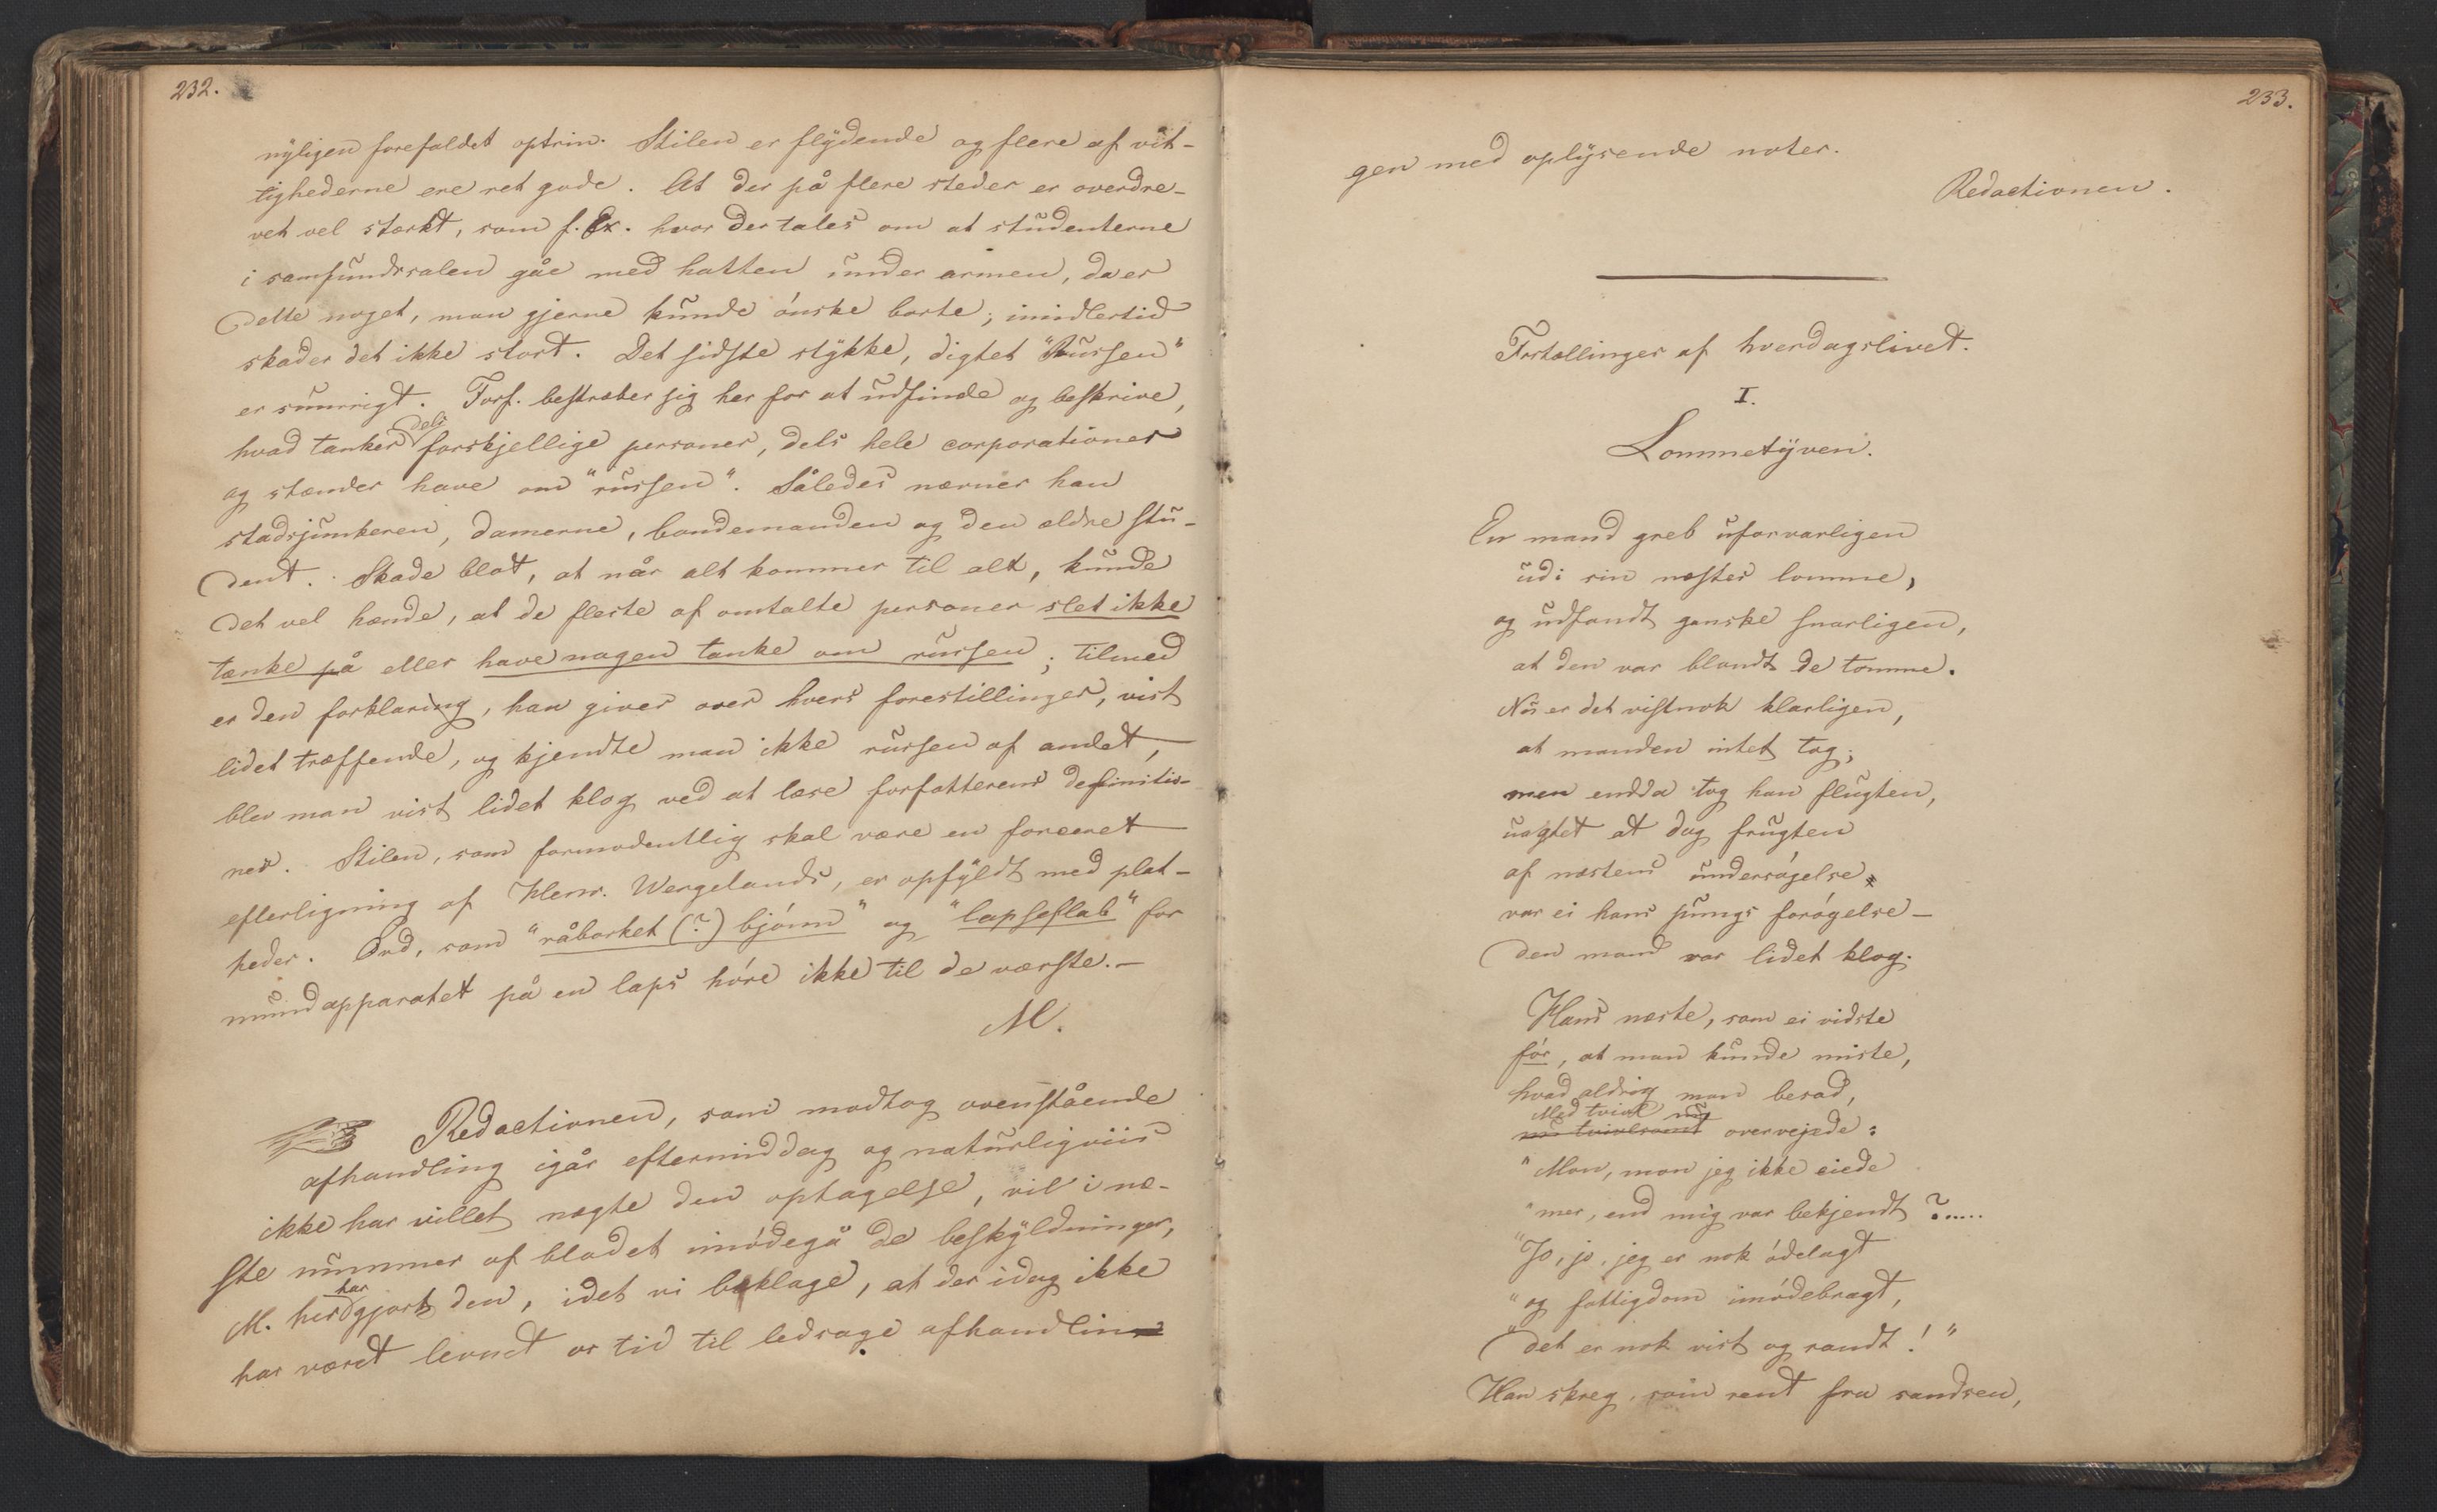 232.
nyligen forefaldet optrin. Stilen er flydende og flere af vit-
tighederne ere ret gode. At der på flere steder er overdre-
vet vel stærkt, som f. Ex. hvor der tales om at studenterne
i samfundssalen gåe med hatten under armen, da er
dette noget, man gjerne kunde ønske borte; imidlertid
skader det ikke stort. Det sidste stykke, digtet "Russen"
er snurrigt. Forf. bestræber sig her for at udfinde og beskrive,
hvad tanker dels forskjellige personer, dels hele corporationer
og stænder have om "russen". Således nævner han
stadsjunkeren, damerne, bondemanden og den ældre stu-
dent. Skade blot, at når alt kommer til alt, kunde
det vel hænde, at de fleste af omtalte personer slet ikke
tænke på eller have nogen tanke om russen; tilmed
er den forklaring, han giver over hvers forestillinger, vist
lidet træffende, og kjendte man ikke russen af andet,
blev man vist lidet klog ved at læse forfatterens definitio-
ner. Stilen, som formodentlig skal være en foræret
efterligning af Henr. Wergelands, er opfyldt med plat-
heder. Ord, som "råbarket (?) bjørn" og "lapseflab" for
mundapparatet på en laps høre ikke til de værste.—
M.
Redactionen, som modtog ovenstående
afhandling igår eftermiddag og naturligviis
ikke har villet nægte den optagelse, vil i næ-
ste nummer af bladet imødegå de beskyldninger,
M. her har gjort den, idet vi beklage, at der idag ikke
har været levnet os tid til ledsage afhandlin
233.
gen med oplysende noter.
Redactionen.
Fortællinger af hverdagslivet.
I.
Lommetyven.
En mand greb uforvarligen
udi sin næstes lomme,
og udfandt ganske snarligen,
at den var blandt de tomme.
Nu er det vistnok klarligen,
at manden intet tog;
men endda tog han flugten,
uagtet at dog frugten
af næstens undersøgelse
var ei hans pungs forøgelse —
den mand var lidet klog.
Hans næste, som ei vidste
før, at man kunde miste,
hvad aldrig man besad,
Med tvivl nu
nu tvivlsomt overvejede:
"Mon, mon jeg ikke eiede
"mer, end mig var bekjendt?.....
"Jo, jo, jeg er nok ødelagt
"og fattigdom imødebragt,
"det er nok vist og sandt!"
Han skreg, som rent fra sandsen,